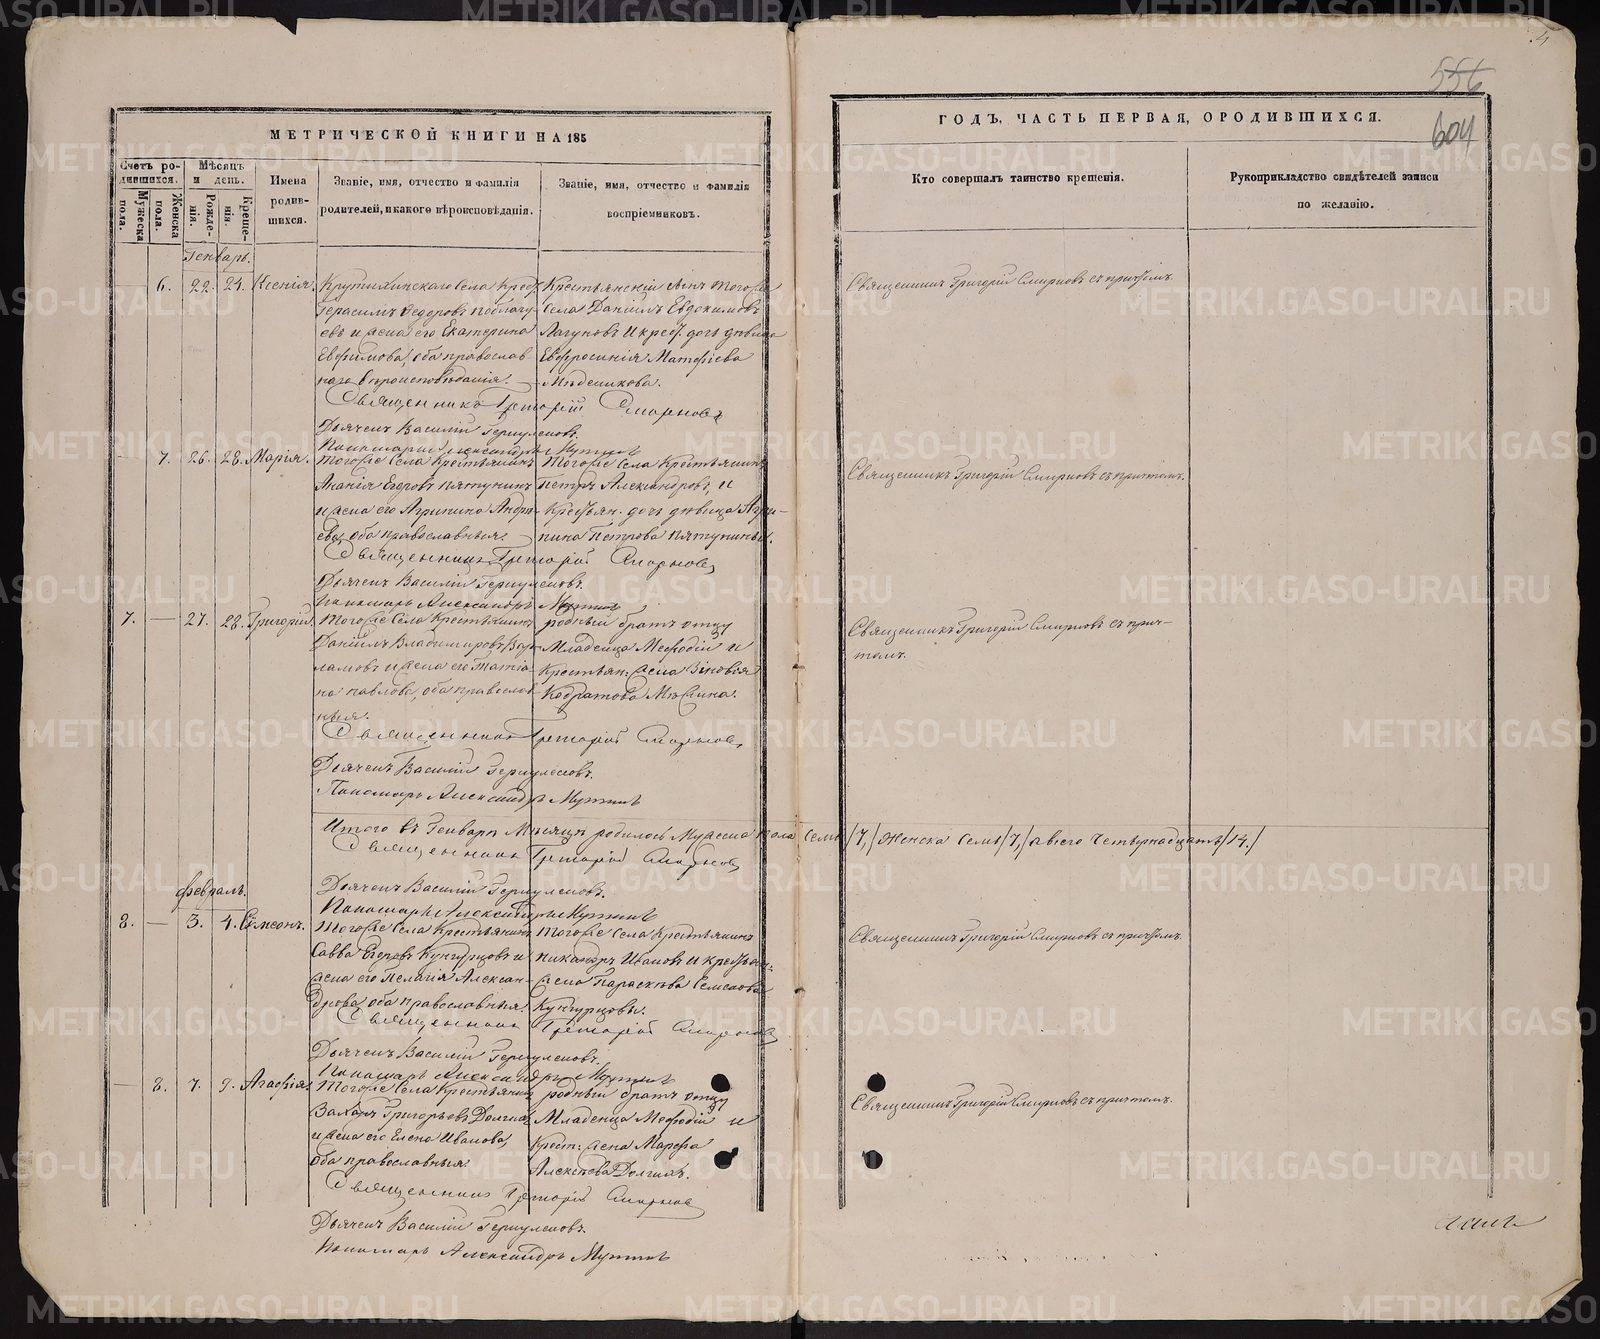 МЕТРИЧЕСКОЙ КНИГИ НА 185
Счетъ ро-
дившихся.
Мужеска
пола.
Женска
пола.
Мѣсяцъ
и день.
Рожде-
нія.
Креще-
нія.
Имена
родив-
шихся.
Званіе, имя, отчество и фамилія
родителей, и какого вѣроисповѣданія.
Званіе, имя, отчество и фамилія
воспріемниковъ.
ГОДЪ, ЧАСТЬ ПЕРВАЯ, О РОДИВШИХСЯ.
Кто совершалъ таинство крещенія.
Рукоприкладство свидѣтелей записи
по желанію.
556
604
Генварь.
6. 22. 24. Ксенія.
Крутихинскаго Села Крест.
Герасимъ Федоровъ
и жена его Екатерина
Евфимова, оба православ
наго вѣроисповѣданія.
Крестьянскій сынъ тогоже
Села Даніилъ Евдокимовъ
Лагуновъ и крест. дочь дѣвица
Евфросинія Матѳіева
Мѣдникова.
Священникъ Григорій Смирновъ съ причтомъ.
Священникъ Григорій Смирновъ
Дьячекъ Василій
Пономарь Александръ
7. 26. 28. Марія.
Тогоже Села Крестьянинъ
Ананія Егоровъ Пятунинъ
и жена его Агрипина Андре-
ева, оба православныя
Тогоже Села Крестьянинъ
Петръ Александровъ, и
Крестьян. дочь дѣвица Агри-
пина Петрова Пятунины.
Священникъ Григорій Смирновъ съ причтомъ.
Священникъ Григорій Смирновъ
Дьячекъ Василій
Пономарь Александръ
7. — 27. 28. Григорій.
Тогоже Села Крестьянинъ
Даніилъ Владимировъ Вар-
ламовъ и жена его Татіа-
на Павлова, оба православ
ныя.
родный братъ отцу
Младенца Меѳодій и
Крестьян. жена Зиновья
Кодратова
Священникъ Григорій Смирновъ съ прич-
томъ.
Священникъ Григорій Смирновъ
Дьячекъ Василій
Пономарь Александръ
Итого въ Генварѣ Мѣсяцѣ родилось Мужеска пола семь /7,/ Женска семь /7,/ а всего четырнадцать /14./
Священникъ Григорій Смирновъ
Дьячекъ Василій
Пономарь Александръ
Февраль.
8. — 3. 4. Симеонъ.
Тогоже Села Крестьянинъ
Савва Егоровъ Кунгурцовъ и
жена его Пелагія Алексан-
дрова, оба православныя.
Тогоже Села Крестьянинъ
Никандръ Ивановъ и крестьян:
жена Параскѣва Семенова
Кунгурцовы.
Священникъ Григорій Смирновъ съ причтомъ.
Священникъ Григорій Смирновъ
Дьячекъ Василій
Пономарь Александръ
— 8. 7. 9. Агафія.
Тогоже Села Крестьянинъ
Захаръ Григорьевъ Долгихъ
и жена его Елена Иванова,
оба православныя.
родный братъ отцу
Младенца Меѳодій и
Крест: жена Марѳа
Алексѣева Долгихъ.
Священникъ Григорій Смирновъ съ причтомъ.
Священникъ Григорій Смирновъ
Дьячекъ Василій
Пономарь Александръ
METRIKI.GASO-URAL.RU